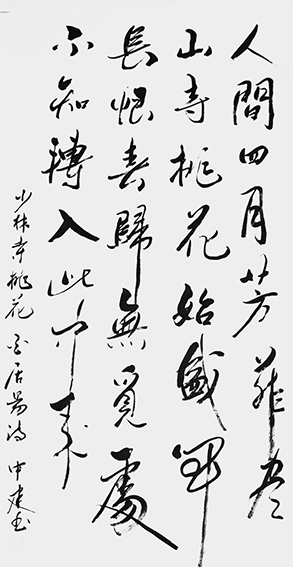 人間四月芳菲尽
山寺桃花始盛開
長恨春歸無覓處
不知轉入此中來
少林寺桃花 白居易诗 中建书